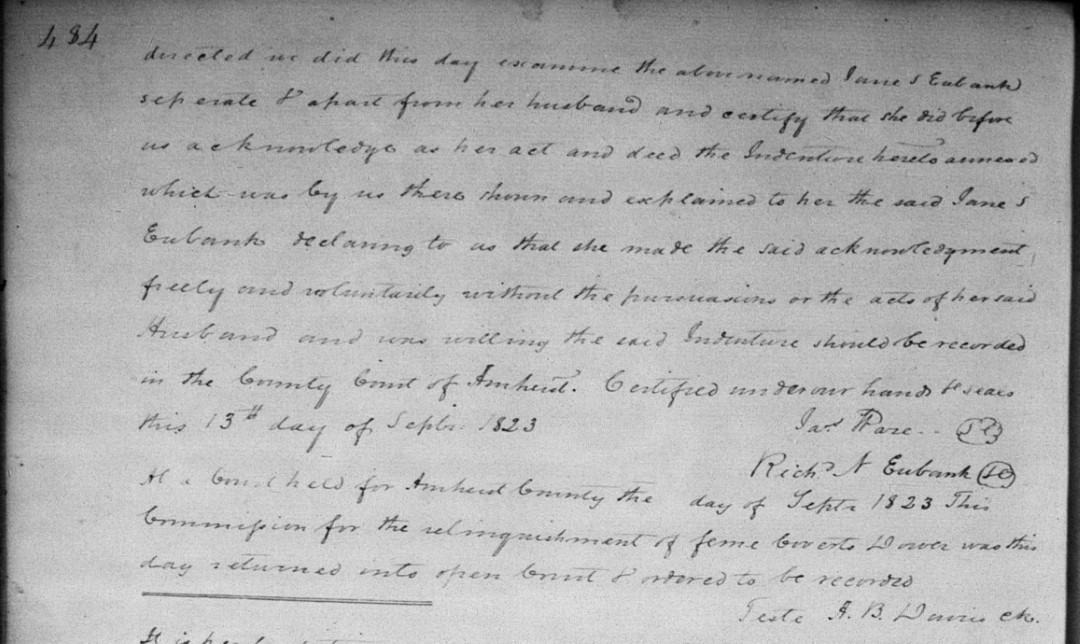 484
directed we did this day examine the above named Jane S Eubank
seperate & apart from her husband and certify that she did before
us acknowledge as her act and deed the Indenture hereto annexed
which was by us there shown and explained to her the said Jane S
Eubank declaring to us that she made the said acknowledgment
freely and voluntarily without the pursuasions or the acts of her said
Husband and was willing the said Indenture should be recorded
in the County Court of Amherst. Certified under our hands & seals
this 13th day of Septbr 1823
Jas Pare
Richd N Eubank
At a Court held for Amherst County the day of Septr 1823 This
Commission for the relinquishment of feme Coverts Dower was this
day returned into open Court & ordered to be recorded
Teste A. B. Davies clk.